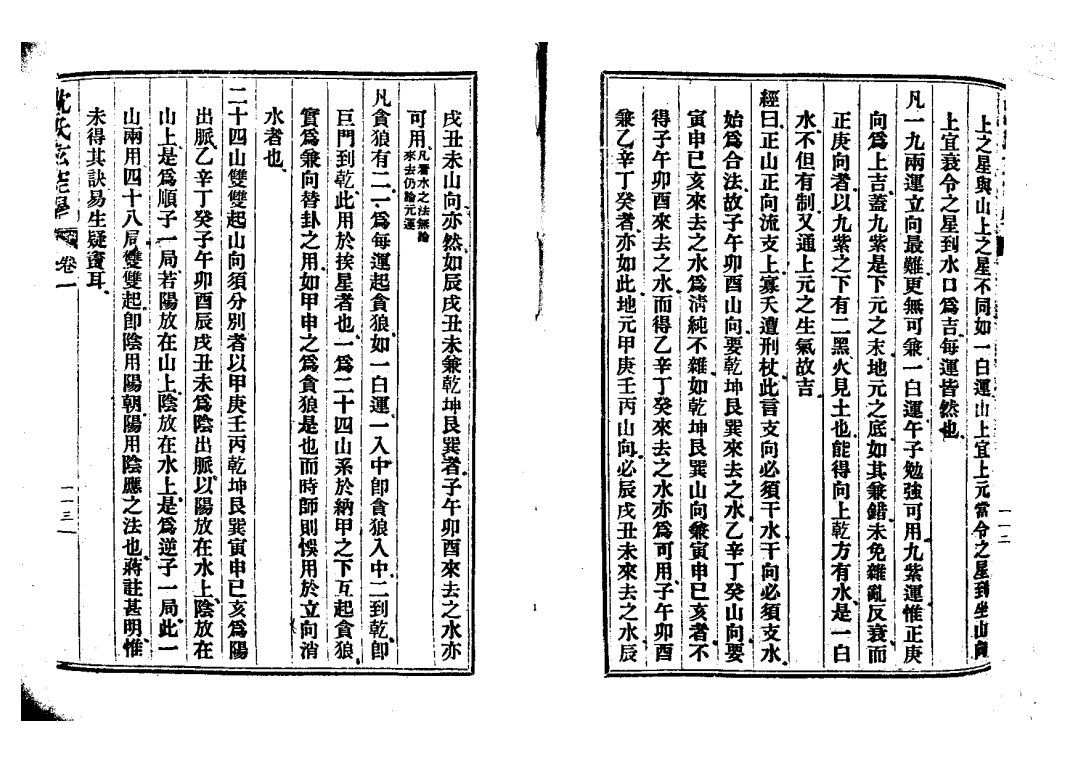 上之星與山上之星不同如一白運山上宜上元當令之星到坐山向
上宜衰令之星到水口爲吉每運皆然也
凡一九兩運立向最難更無可兼一白運午子勉強可用九紫運惟正庚
向爲上吉蓋九紫是下元之末地元之底如其兼錯未免雜亂反衰而
正庚向者以九紫之下有二黑火見土也能得向上乾方有水是一白
水不但有制又通上元之生氣故吉
經曰正山正向流支上寡夭遭刑杖此言支向必須干水干向必須支水
始爲合法故子午卯酉山向要乾坤艮巽來去之水乙辛丁癸山向要
寅申巳亥來去之水爲清純不雜如乾坤艮巽山向兼寅申巳亥者不
得子午卯酉來去之水而得乙辛丁癸來去之水亦爲可用子午卯酉
兼乙辛丁癸者亦如此地元甲庚壬丙山向必辰戌丑未來去之水辰
一一二
戌丑未山向亦然如辰戌丑未兼乾坤艮巽者子午卯酉來去之水亦
可用凡看水之法無論來去仍論元運
凡貪狼有二一爲每運起貪狼如一白運一入中卽貪狼入中二到乾卽
巨門到乾此用於挨星者也一爲二十四山系於納甲之下互起貪狼
實爲兼向替卦之用如甲申之爲貪狼是也而時師則悞用於立向消
水者也
二十四山雙雙起山向須分別者以甲庚壬丙乾坤艮巽寅申巳亥爲陽
出脈乙辛丁癸子午卯酉辰戌丑未爲陰出脈以陽放在水上陰放在
山上是爲順子一局若陽放在山上陰放在水上是爲逆子一局此一
山兩用四十八局雙雙起卽陰用陽朝陽用陰應之法也蔣註甚明惟
未得其訣易生疑竇耳
沈氏玄空學 卷一
一一三